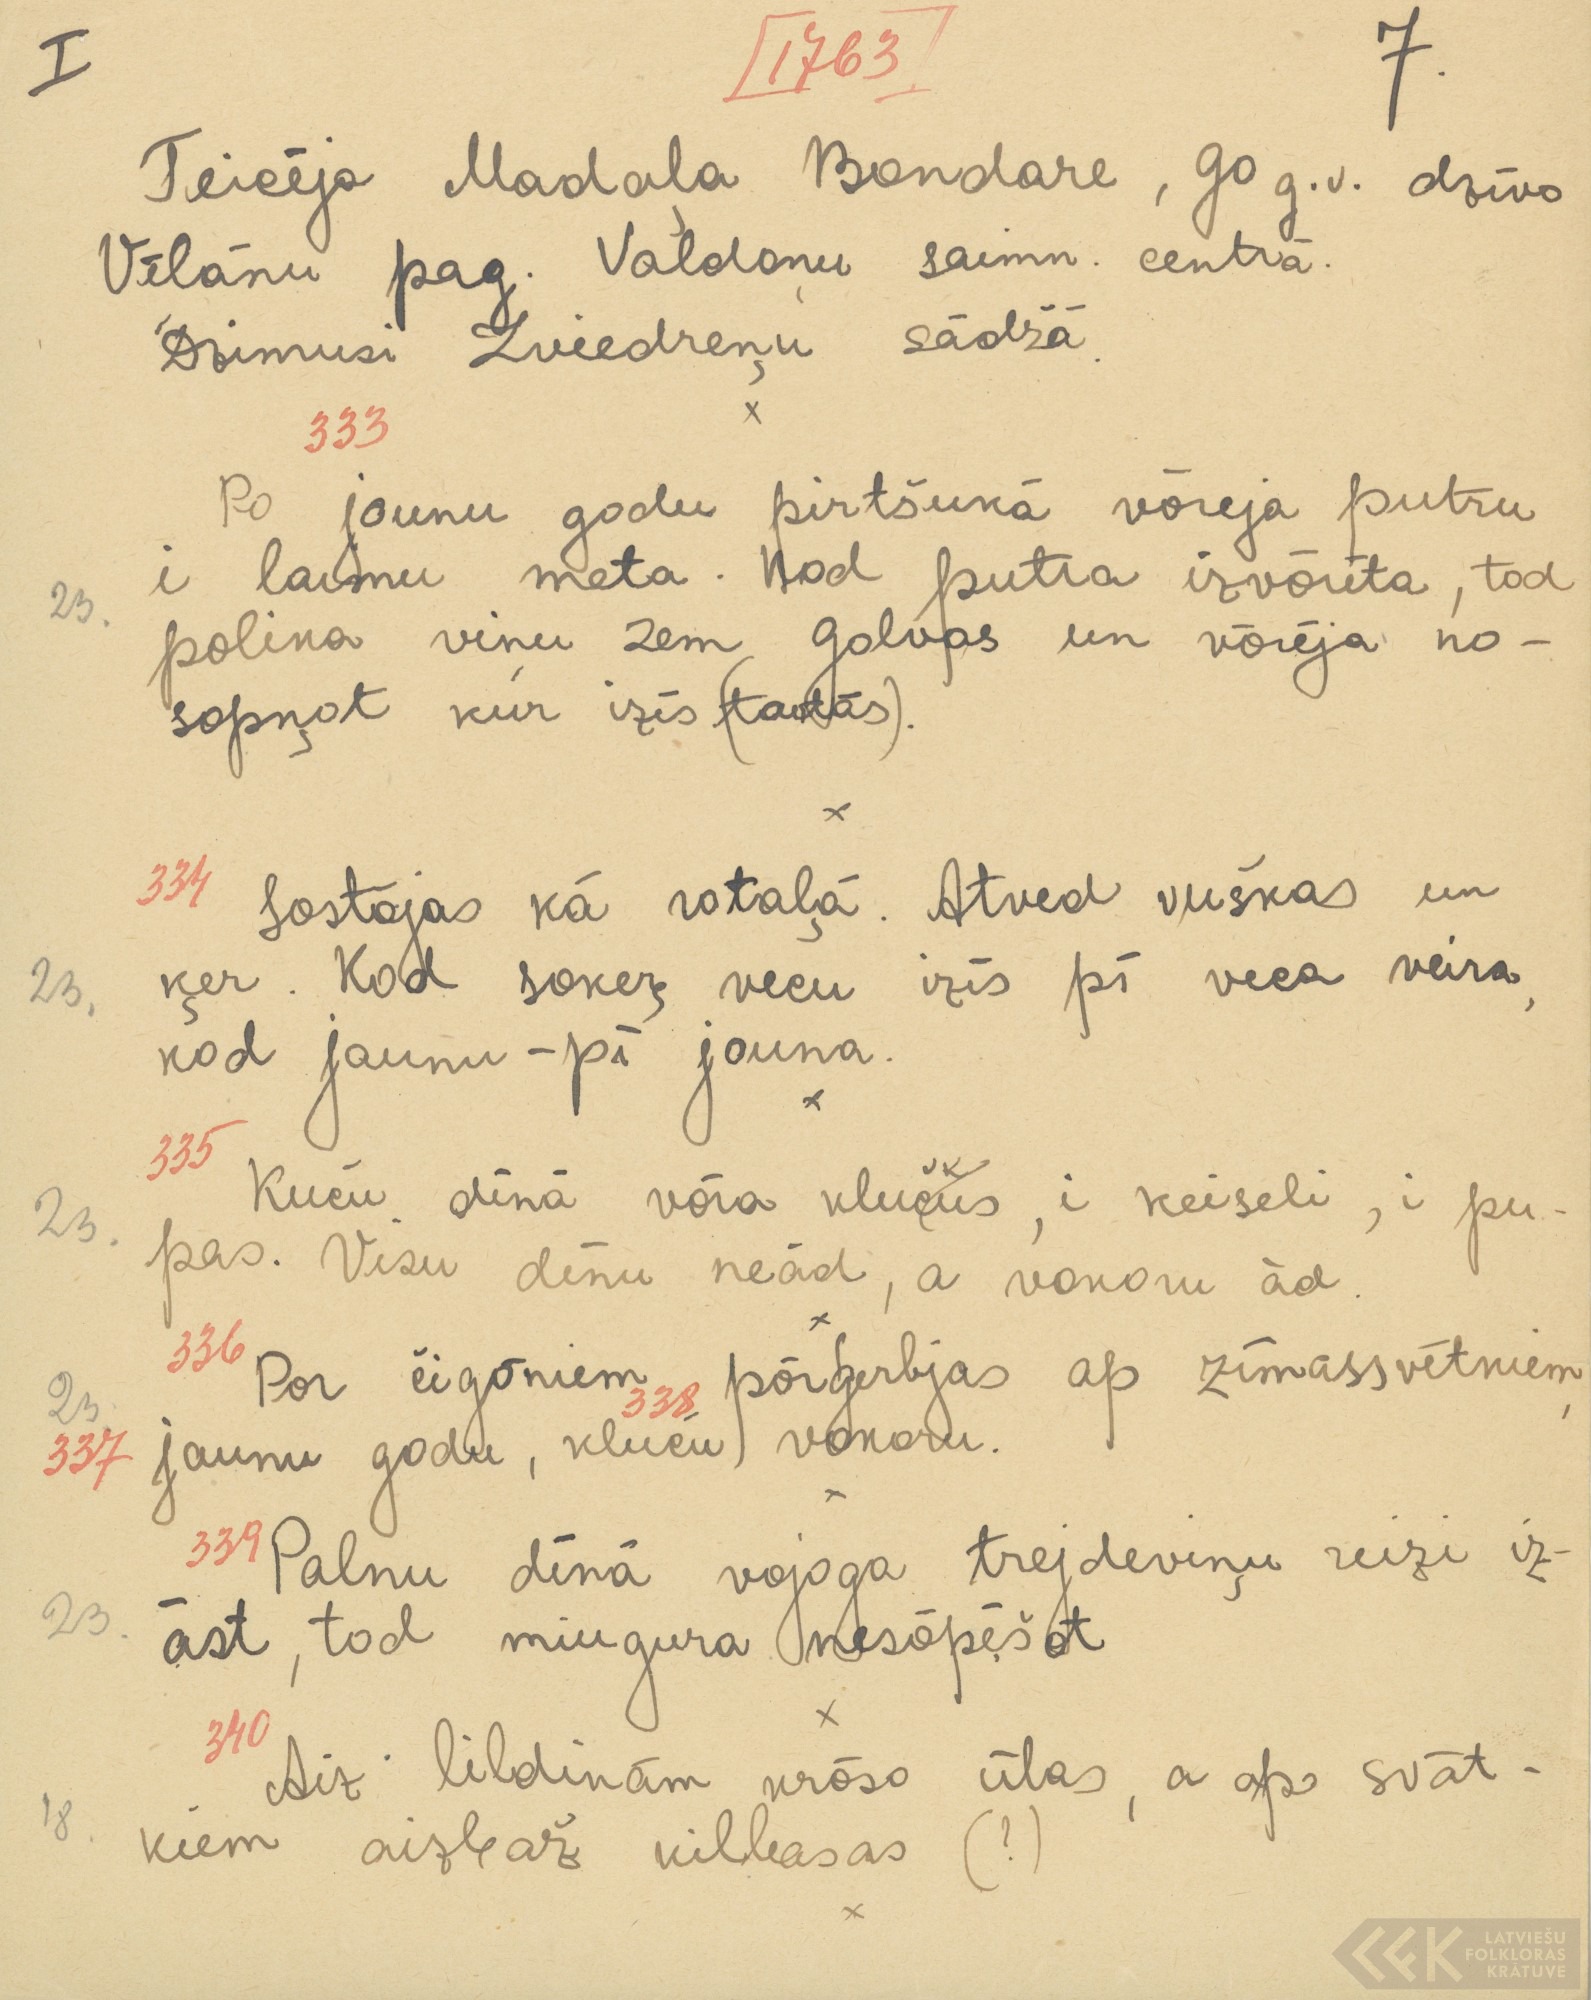 I [1763] 7.
Teicēja Madaļa Bondare, 90 g.v. dzīvo
Vīlānu pag. Valdoņu saimn. centrā.
Dzimusi Zviedreņu sādžā.
x
333
Po jounu godu pirtšukā vōreja putru
23. i laimu meta. Kod putra izvōrīta, tod
polika viņu zem golvas un vōrēja no-
sopņot kur izīs (tautās).
x
334 Sostōjas kā rotaļā. Atved vuškas un
23. ķer. Kod soķer vecu izīs pī veca veira,
kod jaunu - pī jouna.
x
335 Kuču dīnā vōra klučus, i keiseli, i pu-
23. pas. Visu dīnu neād, a vokoru ād.
x
336 Por čigōniem pōrģerbjas ap zīmassvētkiem,
23. 338
337 jaunu godu, kluču vokoru.
x
339 Palnu dīnā vojoga trejdeviņu reizi iz-
23. āst, tod miugura nesōpēšot
x
340 Aiz lildinām krōso ūlas, a ap svāt-
18. kiem aizbaž (?)
x
LATVIEŠU
FOLKLORAS
KRĀTUVE